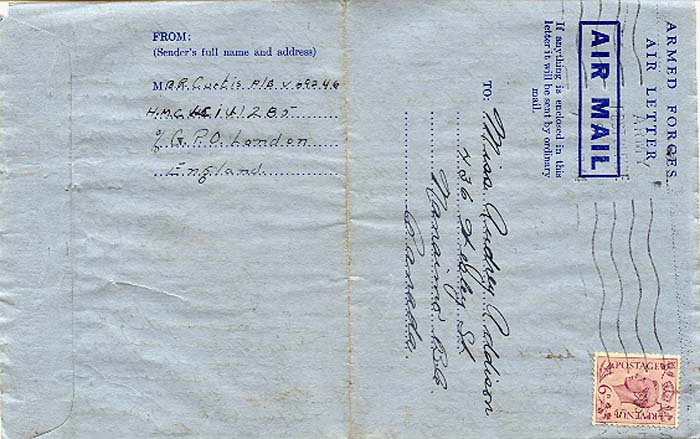 FROM:
(Sender's full name and address)
M R.R. Curtis A/B V.69346
H.M.C. 1285
c/o G.P.O. London
England
ARMED FORCES
AIR LETTER
AIR MAIL
If anything is enclosed in this
letter it will be sent by ordinary
mail.
ARMY
TO:
Miss Audrey Addison
436 St
Nanaimo B.C.
Canada.
POSTAGE
6D
REVENUE